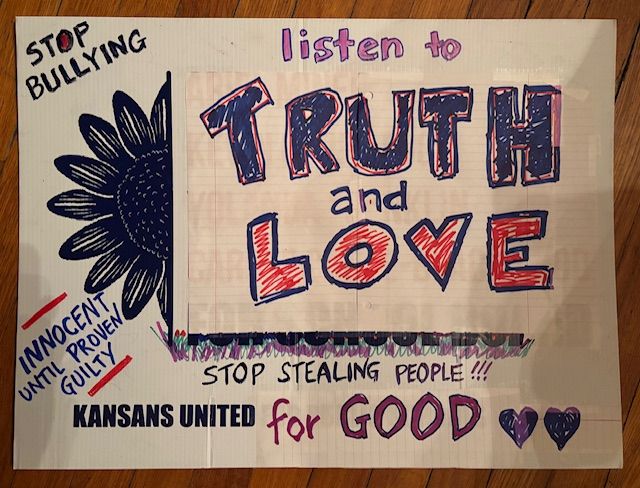 STOP
BULLYING
listen to
TRUTH
and
LOVE
INNOCENT
UNTIL PROVEN
GUILTY
STOP STEALING PEOPLE!!!
KANSANS UNITED for GOOD